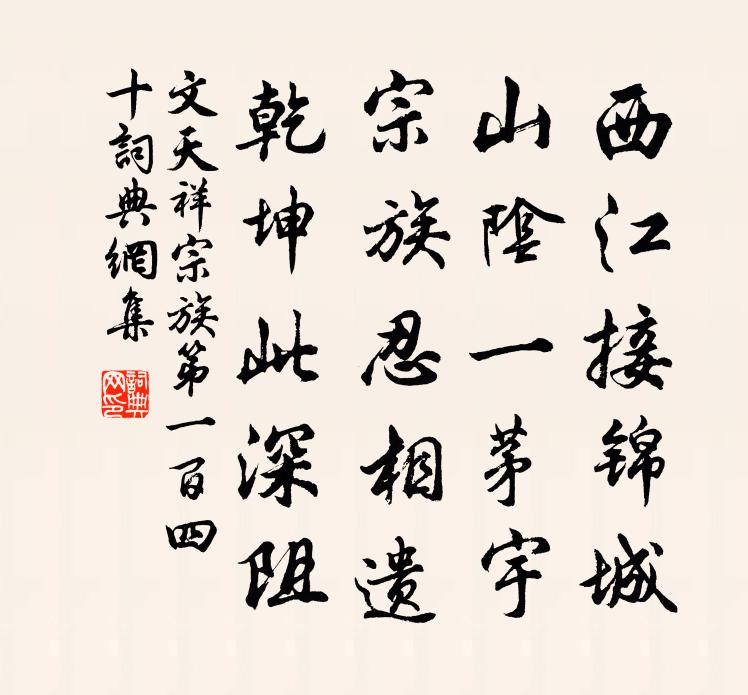 西江接锦城
山陰一茅宇
宗族忍相遗
乾坤此深阻
文天祥宗族第一百四
十詞典網集
詞典網印